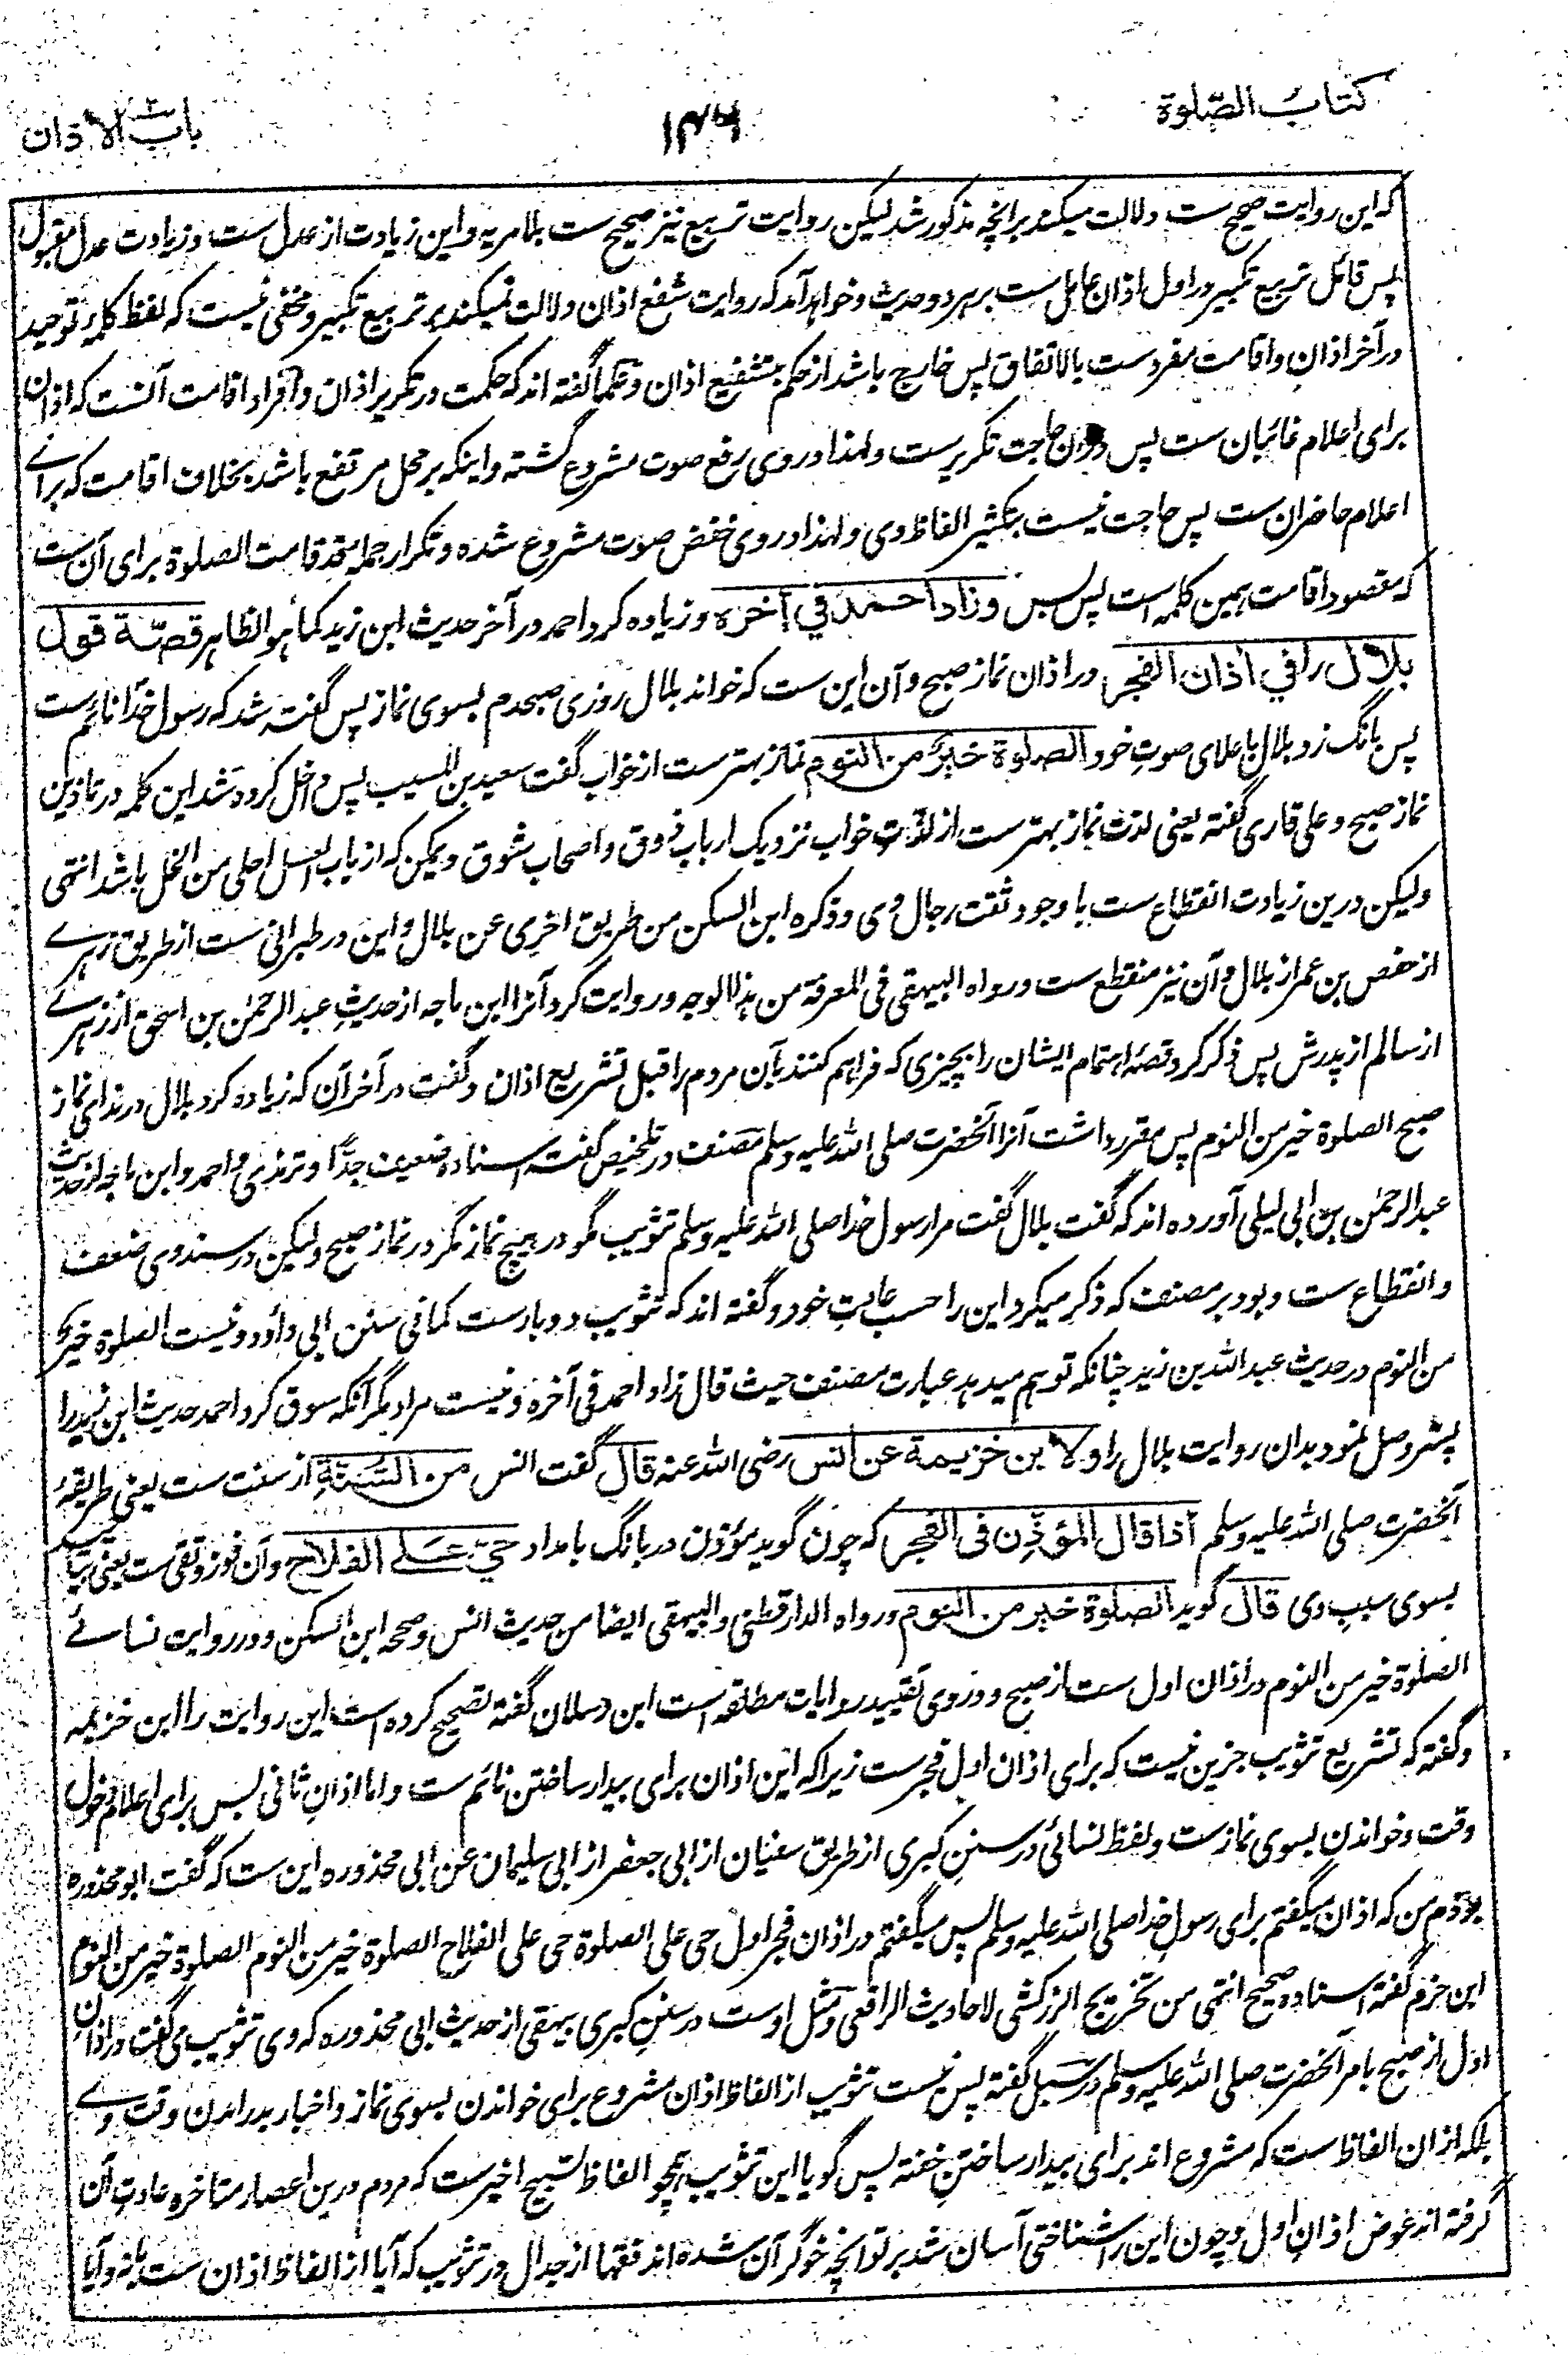 کتاب الصّلوة
۱۴۶
باب الاذان
که این روایت صحیح ست دلالت میکند برانچه مذکور شد لیکن روایت تربیع نیز صحیح ست بلامریه و این زیادت از عدل ست و زیادت عدل مقبول
پس قائل تربیع تکبیر در اول اذان عامل ست بر هر دو حدیث و خواهد آمد که روایت شفع اذان دلالت نمیکند بر تربیع تکبیر و مخفی نیست که لفظ کلمهٔ توحید
در آخر اذان و اقامت مفرد ست بالاتفاق پس خارج باشد از حکم بتشفیع اذان و علما گفته اند که حکمت در تکریر اذان و افراد اقامت آنست که اذان
برای اعلام غائبان ست پس دران حاجت تکریر ست و لهذا در وی رفع صوت مشروع گشته و اینکه بر محل مرتفع باشد بخلاف اقامت که براے
اعلام حاضران ست پس حاجت نیست بتکثیر الفاظ وی و لهذا در وی خفض صوت مشروع شده و تکرار جملهٔ قد قامت الصلوة برای آن ست
که مقصود اقامت همین کلمه است پس بس وزاد احمد في آخره و زیاده کرد احمد در آخر حدیث ابن زید کما هو الظاهر قصّة قول
بلال را في أذان الفجر در اذان نماز صبح و آن این ست که خواند بلال روزی صبحدم بسوی نماز پس گفته شد که رسول خدا نائم ست
پس بانگ زد بلال باعلای صوتِ خود الصلوة خیر من النوم نماز بهتر ست از خواب گفت سعید بن المسیب پس داخل کرده شد این کلمه در تاذین
نماز صبح و علی قاری گفته یعنی لذت نماز بهتر ست از لذّتِ خواب نزدیک ارباب ذوق و اصحاب شوق و یمکن که از باب العسل احلی من الخل باشد انتهی
ولیکن درین زیادت انقطاع ست با وجود ثقت رجال وی و ذکره ابن السکن من طریق اخری عن بلال و این در طبرانی ست از طریق زهرے
از حفص بن عمر از بلال و آن نیز منقطع ست و رواه البیهقی فی المعرفة من هذا الوجه و روایت کرد آنرا ابن ماجه از حدیثِ عبد الرحمٰن بن اسحق از زهرے
از سالم از پدرش پس ذکر کرد قصهٔ اهتمام ایشان را بچیزی که فراهم کنند بآن مردم را قبل تشریع اذان و گفت در آخر آن که زیاده کرد بلال در ندای نماز
صبح الصلوة خیر من النوم پس مقرر داشت آنرا آنحضرت صلی الله علیه وسلم مصنف در تلخیص گفته اسناده ضعیف جدًّا و ترمذی و احمد و ابن ماجه از حدیث
عبد الرحمٰن بن ابی لیلی آورده اند که گفت بلال گفت مرا رسول خدا صلی الله علیه وسلم تثویب مگو در هیچ نماز مگر در نماز صبح ولیکن در سند وی ضعف
و انقطاع ست و بود بر مصنف که ذکر میکرد این را حسب عادتِ خود و گفته اند که تثویب دو بار ست کما فی سنن ابی داؤد و نیست الصلوة خیر
من النوم در حدیث عبد الله بن زید چنانکه توهم میدهد عبارت مصنف حیث قال زاد احمد فی آخره و نیست مراد مگر آنکه سوق کرد احمد حدیث ابن زید را
پستر وصل نمود بدان روایت بلال را ولابن خزیمة عن انس رضی الله عنه قال گفت انس من السُّنَّةِ از سنت ست یعنی طریقهٔ
آنحضرت صلی الله علیه وسلم اذا قال المؤذِّن فی الفجر که چون گوید مؤذن در بانگ بامداد حيّ علے الفلاح و آن فوز و تقی ست یعنی بیائید
بسوی سببِ وی قال گوید الصلوة خیر من النوم و رواه الدارقطنی و البیهقی ایضا من حدیث انس و صححه ابن السکن و در روایت نسائے
الصلوة خیر من النوم در اذان اول ست از صبح و در وی تقیید روایات مطلقه است ابن رسلان گفته تصحیح کرده است این روایت را ابن خزیمه
و گفته که تشریع تثویب جزین نیست که برای اذان اول فجر ست زیرا که این اذان برای بیدار ساختن نائم ست و اما اذانِ ثانی پس برای اعلام دخول
وقت و خواندن بسوی نماز ست و لفظ نسائی در سننِ کبری از طریق سفیان از ابی جعفر از ابی سلیمان عن ابی محذوره این ست که گفت ابو محذوره
بودم من که اذان میگفتم برای رسول خدا صلی الله علیه وسلم پس میگفتم در اذان فجر اول حی علی الصلوة حی علی الفلاح الصلوة خیر من النوم الصلوة خیر من النوم
ابن حزم گفته اسناده صحیح انتهی من تخریج الزرکشی لاحادیث الرافعی و مثل اوست در سننِ کبری بیهقی از حدیث ابی محذوره که وی تثویب می گفت در اذانِ
اول از صبح بامر آنحضرت صلی الله علیه وسلم در سبل گفته پس نیست تثویب از الفاظ اذان مشروع برای خواندن بسوی نماز و اخبار بدر امدن وقت وے
بلکه ازان الفاظ ست که مشروع اند برای بیدار ساختنِ خفته پس گویا این تثویب همچو الفاظ تسبیح اخیر ست که مردم درین اعصار متاخره عادتِ آن
گرفته اند عوض اذان اول و چون این را شناختی آسان شد بر تو انچه خوگر آن شده اند فقها از جدال در تثویب که آیا از الفاظ اذان ست یا نه و آیا